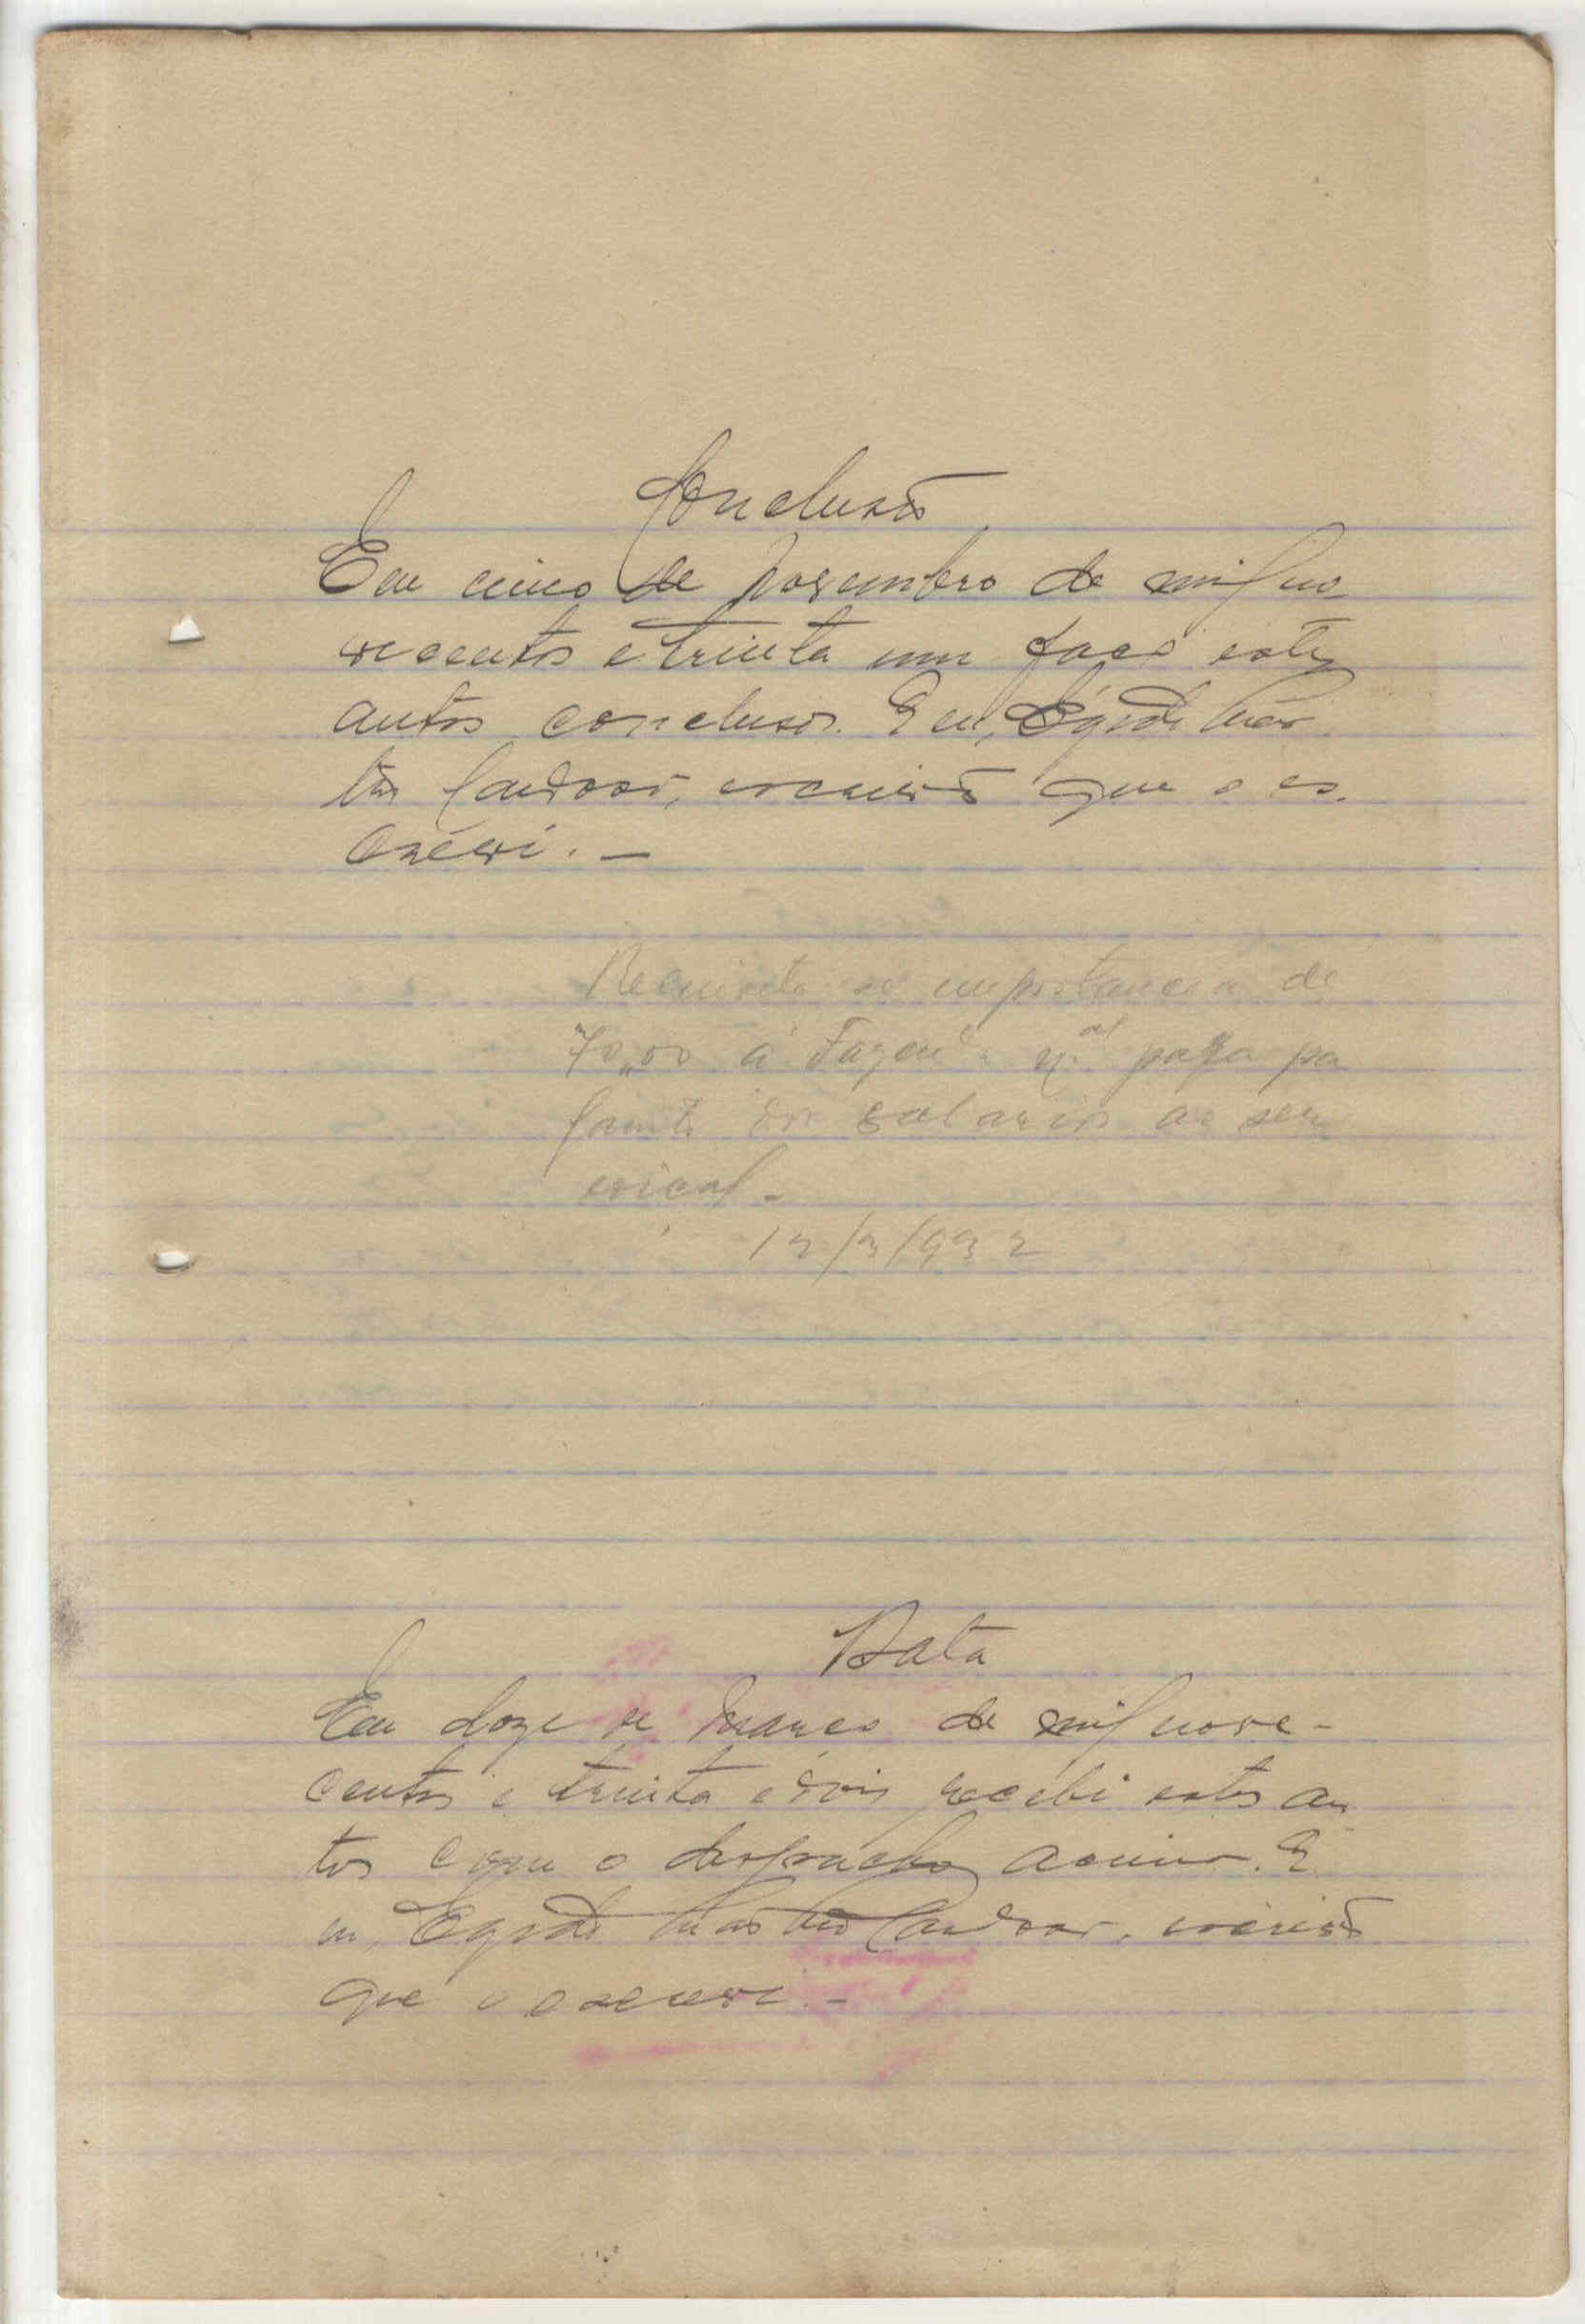 Conclusão
Em cinco de Novembro de mil no-
vecentos e trinta um faço estes
autos conclusos. Eu, Egidio Mar
tins Cardoso, escrivão que o es-
crevi. —
Requisite se importancia de
70,00 á Fazenda nal para pa
gamto dos salarios ao ser
viçal -
12/3/932
Data
Em doze de Março de mil nove-
centos e trinta e dois recebi estes au
tos com o despacho acima. E
u, Egidio Martins Cardoso, escrivão
que o escrevi. -